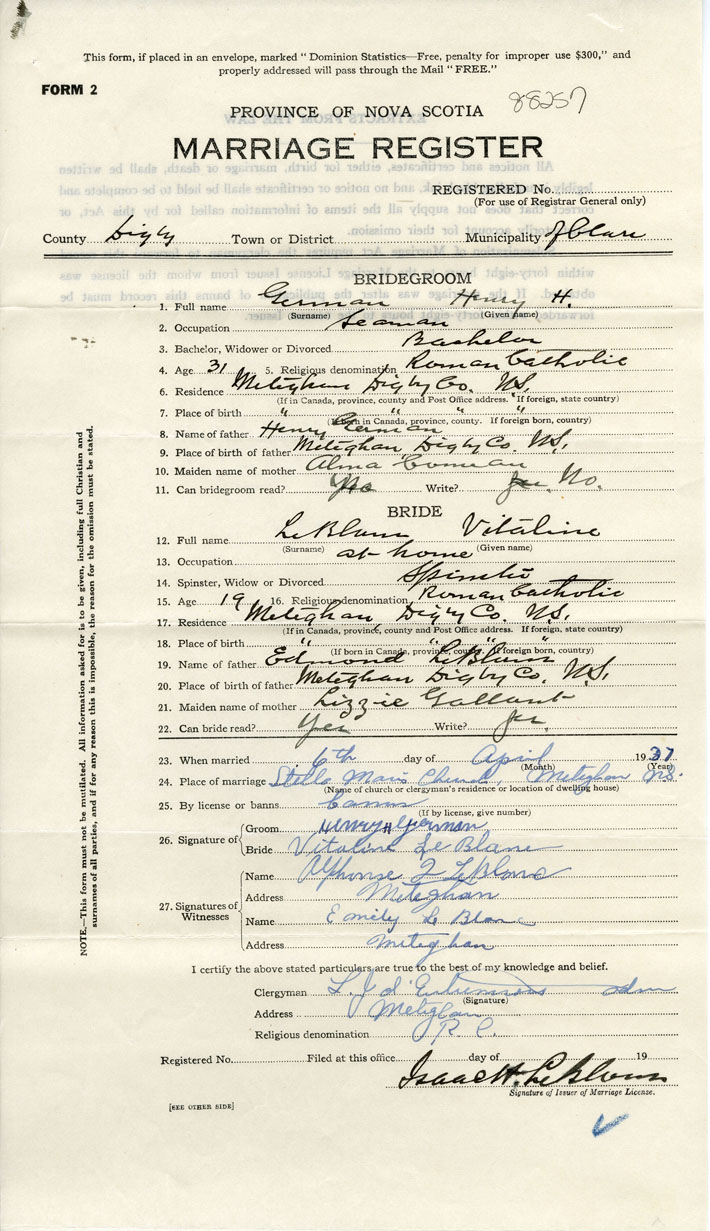 This form, if placed in an envelope, marked "Dominion Statistics—Free, penalty for improper use $300," and
properly addressed will pass through the Mail "FREE."
FORM 2
88257
PROVINCE OF NOVA SCOTIA
MARRIAGE REGISTER
REGISTERED No.
(For use of Registrar General only)
County Digby Town or District Municipality of Clare
BRIDEGROOM
1. Full name German Henry H.
(Surname) (Given name)
2. Occupation Seaman
3. Bachelor, Widower or Divorced Bachelor
4. Age 31 5. Religious denomination Roman Catholic
6. Residence Meteghan Digby Co. N.S.
(If in Canada, province, county and Post Office address. If foreign, state country)
7. Place of birth " " " "
(If born in Canada, province, county. If foreign born, country)
8. Name of father Henry German
9. Place of birth of father Meteghan Digby Co. N.S.
10. Maiden name of mother Alma Comeau
11. Can bridegroom read? No Write? Yes No.
BRIDE
12. Full name LeBlanc Vitaline
(Surname) (Given name)
13. Occupation at home
14. Spinster, Widow or Divorced Spinster
15. Age 19 16. Religious denomination Roman Catholic
17. Residence Meteghan, Digby Co. N.S.
(If in Canada, province, county and Post Office address. If foreign, state country)
18. Place of birth " " " "
(If born in Canada, province, county. If foreign born, country)
19. Name of father Edmond LeBlanc
20. Place of birth of father Meteghan Digby Co. N.S.
21. Maiden name of mother Lizzie Gallant
22. Can bride read? Yes Write? Yes
23. When married 6th day of April 1937
(Month) (Year)
24. Place of marriage Stella Maris Church, Meteghan N.S.
(Name of church or clergyman's residence or location of dwelling house)
25. By license or banns banns
(If by license, give number)
26. Signature of Groom Henry H German
Bride Vitaline Le Blanc
27. Signatures of Witnesses Name Alphonse J LeBlanc
Address Meteghan
Name Emily Le Blanc
Address Meteghan
I certify the above stated particulars are true to the best of my knowledge and belief.
Clergyman L. J. d'Entremont adm
(Signature)
Address Meteghan
Religious denomination R.C.
Registered No. Filed at this office day of 19
Isaac H. LeBlanc
Signature of Issuer of Marriage License.
[SEE OTHER SIDE]
NOTE.—This form must not be mutilated. All information asked for is to be given, including full Christian and
surnames of all parties, and if for any reason this is impossible, the reason for the omission must be stated.